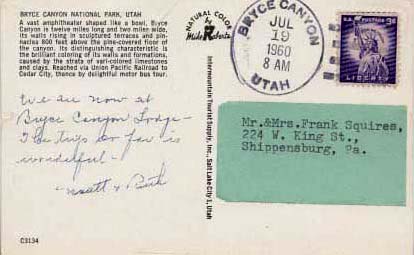 BRYCE CANYON NATIONAL PARK, UTAH
A vast amphitheater shaped like a bowl, Bryce
Canyon is twelve miles long and two miles wide,
its walls rising in sculptured terraces and pin-
nacles 800 feet above the pine-covered floor of
the canyon. Its distinguishing characteristic is
the brilliant coloring of its walls and formations,
caused by the strata of vari-colored limestones
and clays. Reached via Union Pacific Railroad to
Cedar City, thence by delightful motor bus tour.
We are now at
Bryce Canyon Lodge-
The trip so far is
wonderful-
C3134
NATURAL COLOR
by
Mike Roberts
Intermountain Tourist Supply, Inc., Salt Lake City 1, Utah
BRYCE CANYON
JUL
19
1960
8 AM
UTAH
U.S. POSTAGE
3¢
LIBERTY
Mr.&Mrs.Frank Squires,
224 W. King St.,
Shippensburg, Pa.